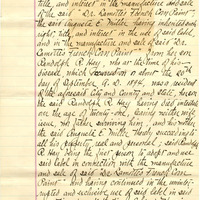 title, and interest in the manufacture and sale
of the said "Dr. Ramette's French Corn Paint
the said Auguste E. Miller having inherited such
right, title, and interest in the use of said label,
and in the manufacture and sale of said Dr.
Ramette's French Corn Paint, from her son
Randolph R. Hey, who at the time of his
decease, which occurred on about the 20th
day of September A.D. 1894, was a resident
of the aforesaid City and County and State, ...
the said Randolph R. Hey having died intestate
over the age of twenty-one, leaving neither wife
issue, nor father surviving him, and his mother
the said Auguste E. Miller thereby succeeding to
all his property, real and personal; said Randolph
R. Hey being the first person to adopt and use
said label in connection with the manufacture
and sale of said Dr. Ramette's French Corn
Paint; and having continued in the uninter-
rupted and exclusive use of said label in said